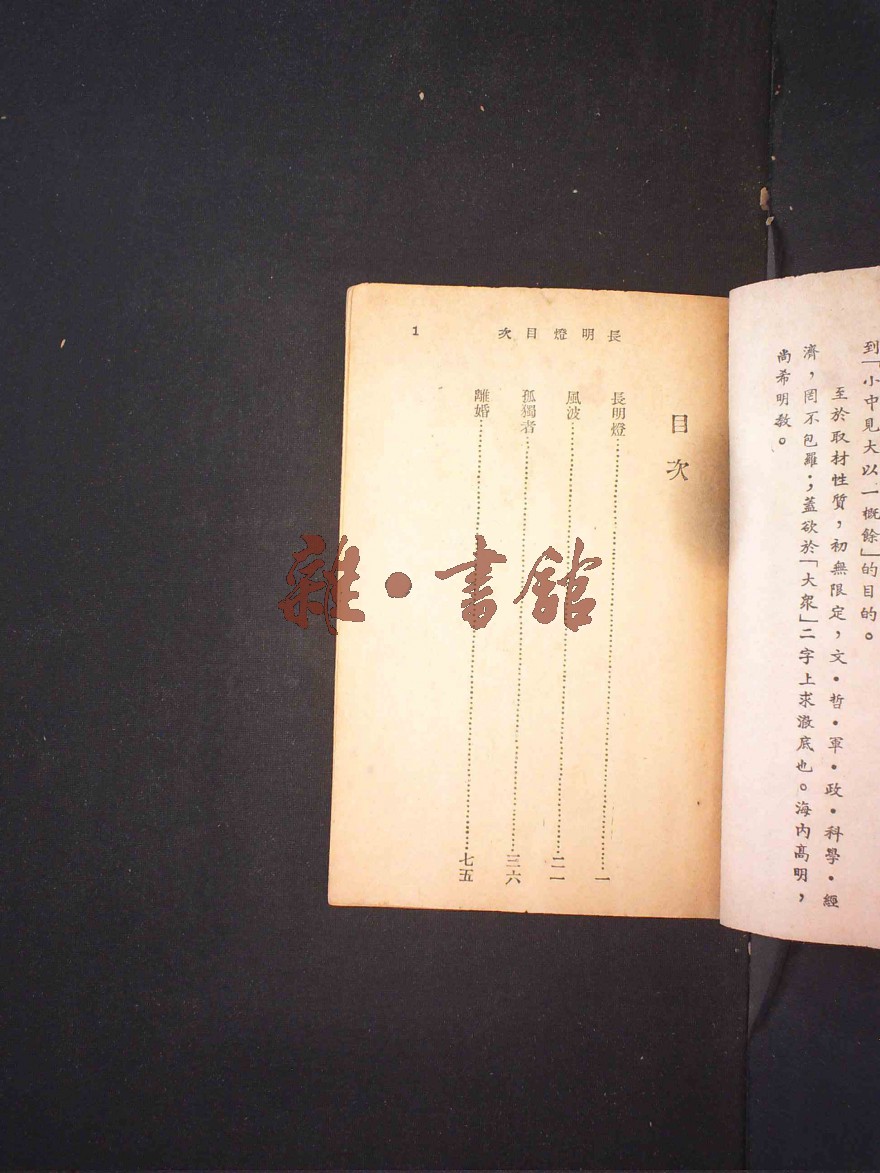 到「小中見大以一概餘」的目的。
至於取材性質，初無限定，文·哲·軍·政·科學·經
濟，罔不包羅；蓋欲於「大衆」二字上求澈底也。海内高明，
尚希明教。
長明燈目次
1
目次
長明燈……一
風波……二一
孤獨者……三六
離婚……七五
雜·書館